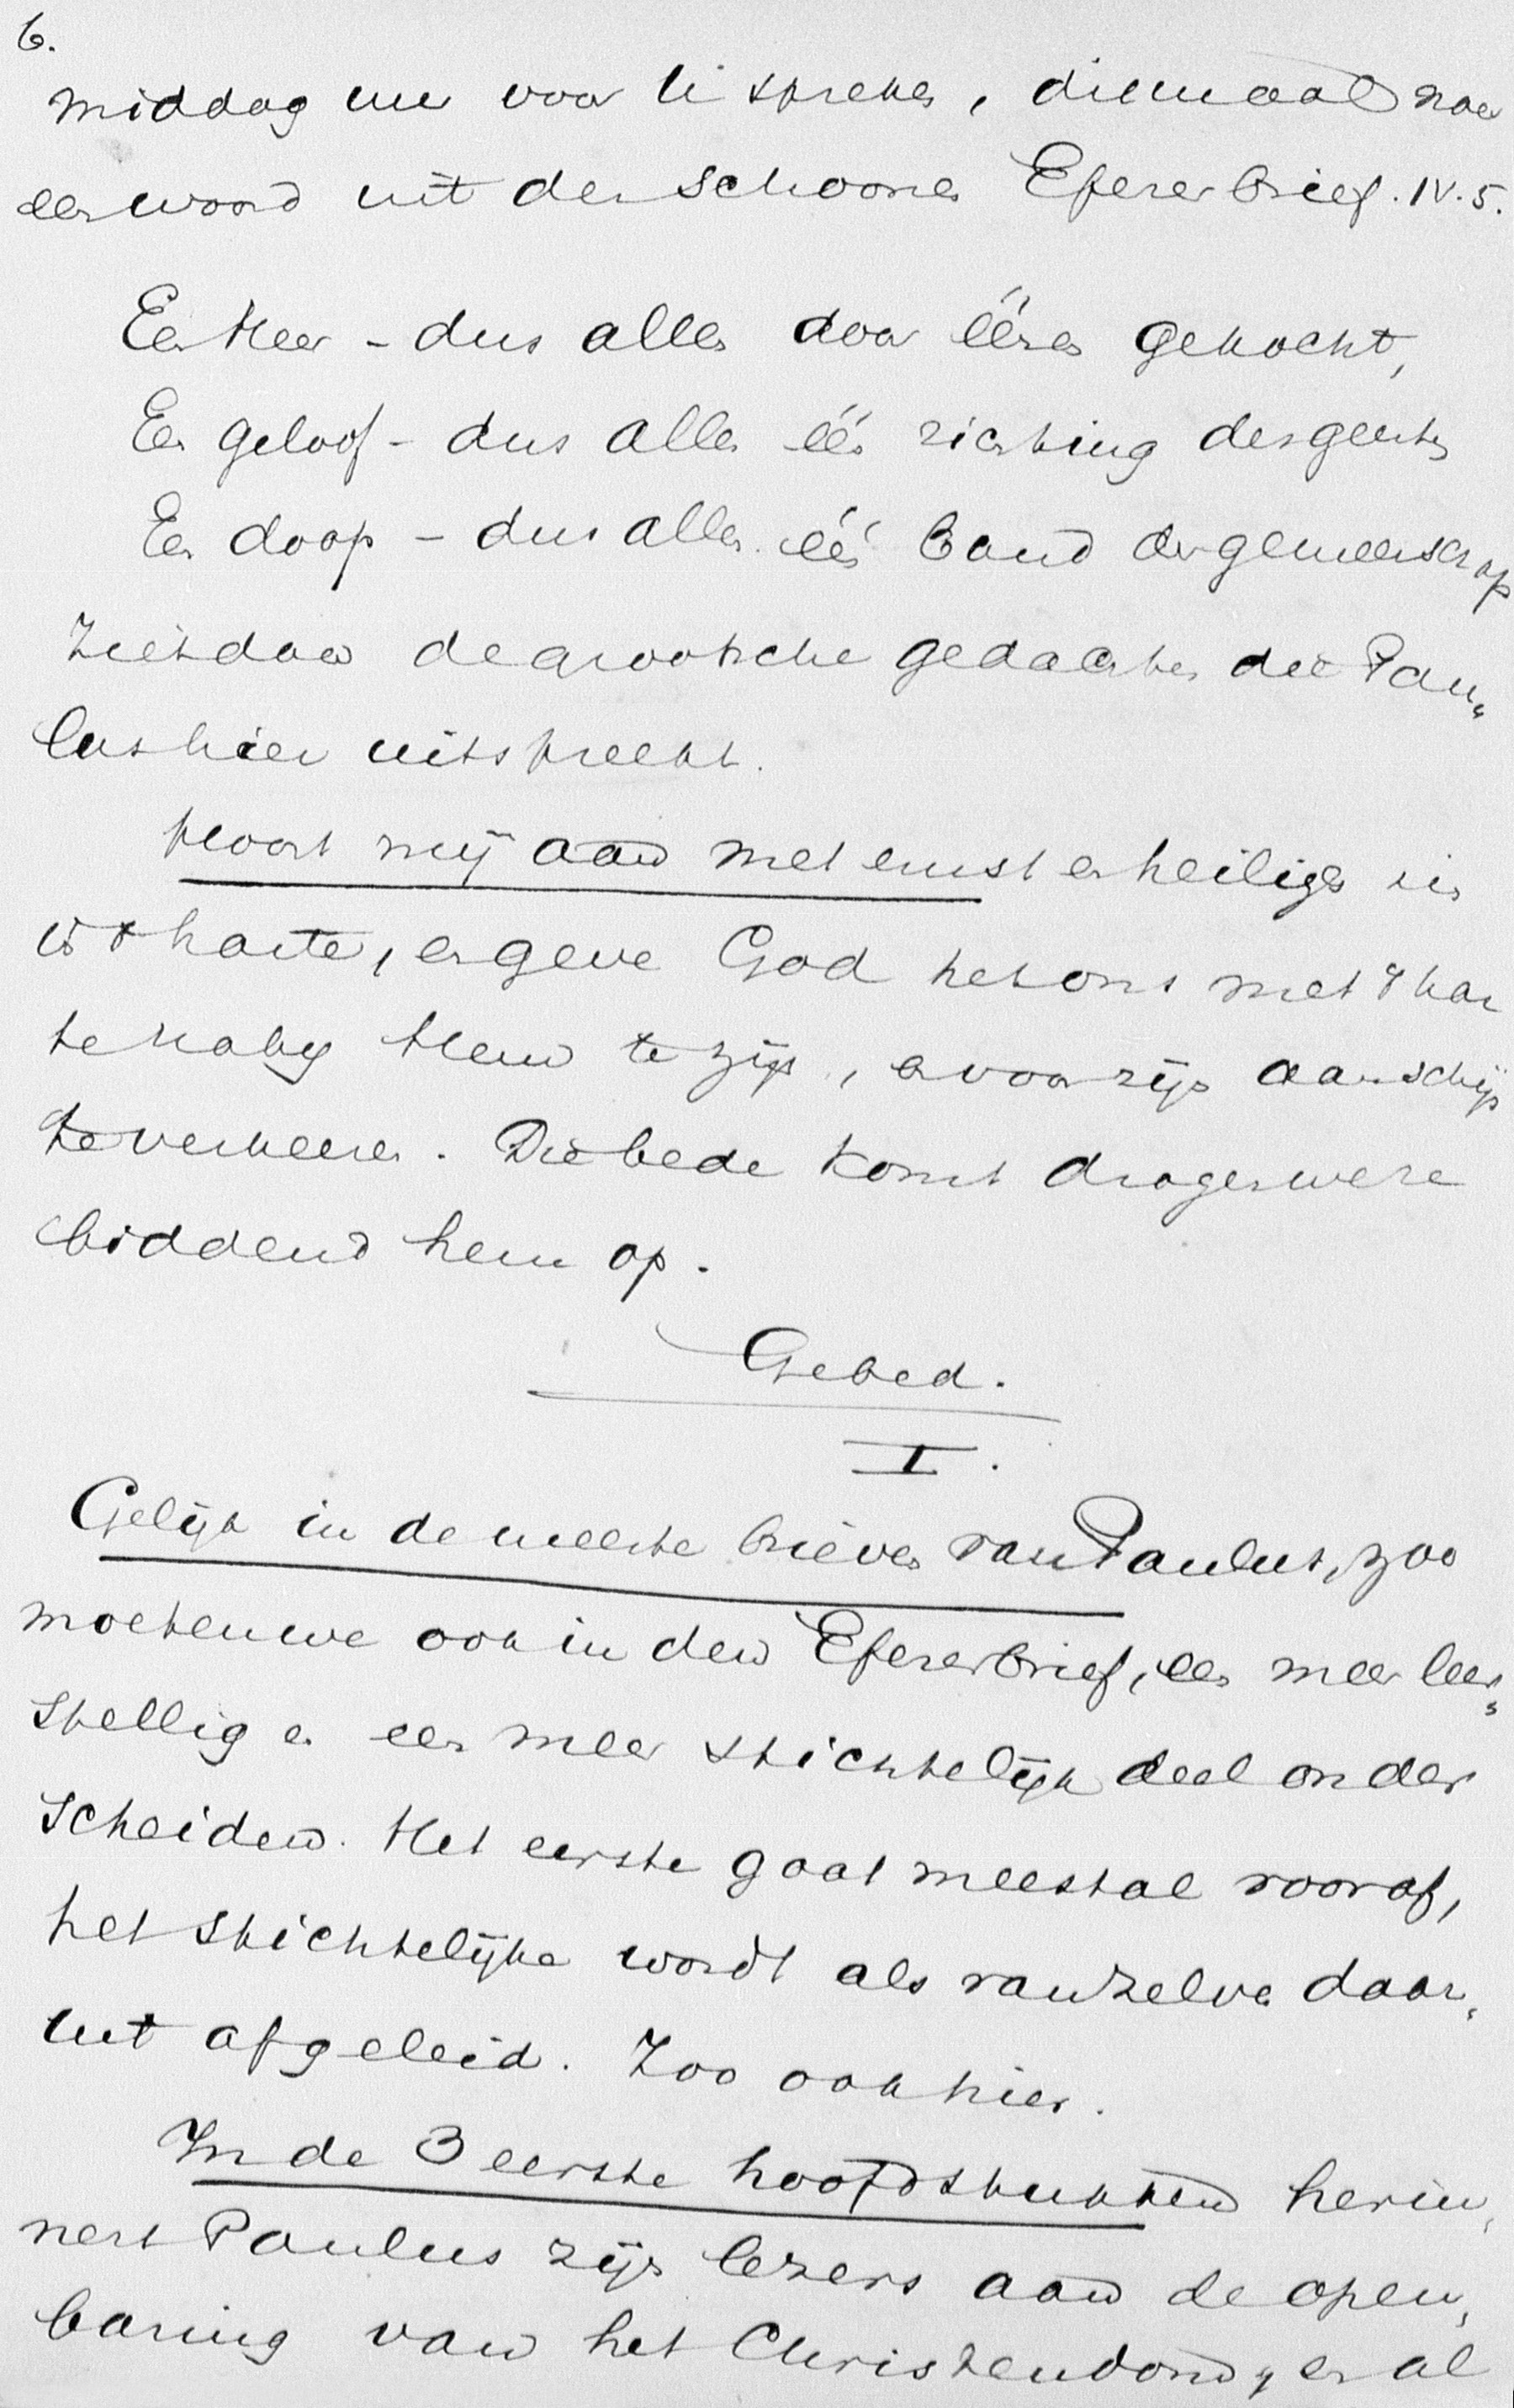 6.
middag nu voor U spreken, ditmaal naar
een woord uit den schoonen Efezerbrief. IV.5.
Een Heer - dus allen door éénen gekocht,
Een geloof - dus allen één richting des geestes
Een doop - dus allen één band der gemeenschap
Ziet daar de grootsche gedachten die Pau„
lus hier uitspreekt.
Hoort mij aan met ernst en heiligen zin
des harten, en geve God het ons met 't har
te nabij Hem te zijn, en voor zijn aanschijn
te verkeeren. Die bede komt dragen we
biddend hem op.
Gebed.
I.
Gelijk in de meeste brieven van Paulus, zoo
moeten we ook in den Efezerbrief, een meer leer„
stellig en een meer stichtelijk deel onder
scheiden. Het eerste gaat meestal voor af,
het stichtelijke wordt als van zelve daar„
uit afgeleid. Zoo ook hier.
In de 3 eerste hoofdstukken herin„
nert Paulus zijn lezers aan de open„
baring van het Christendom, en al